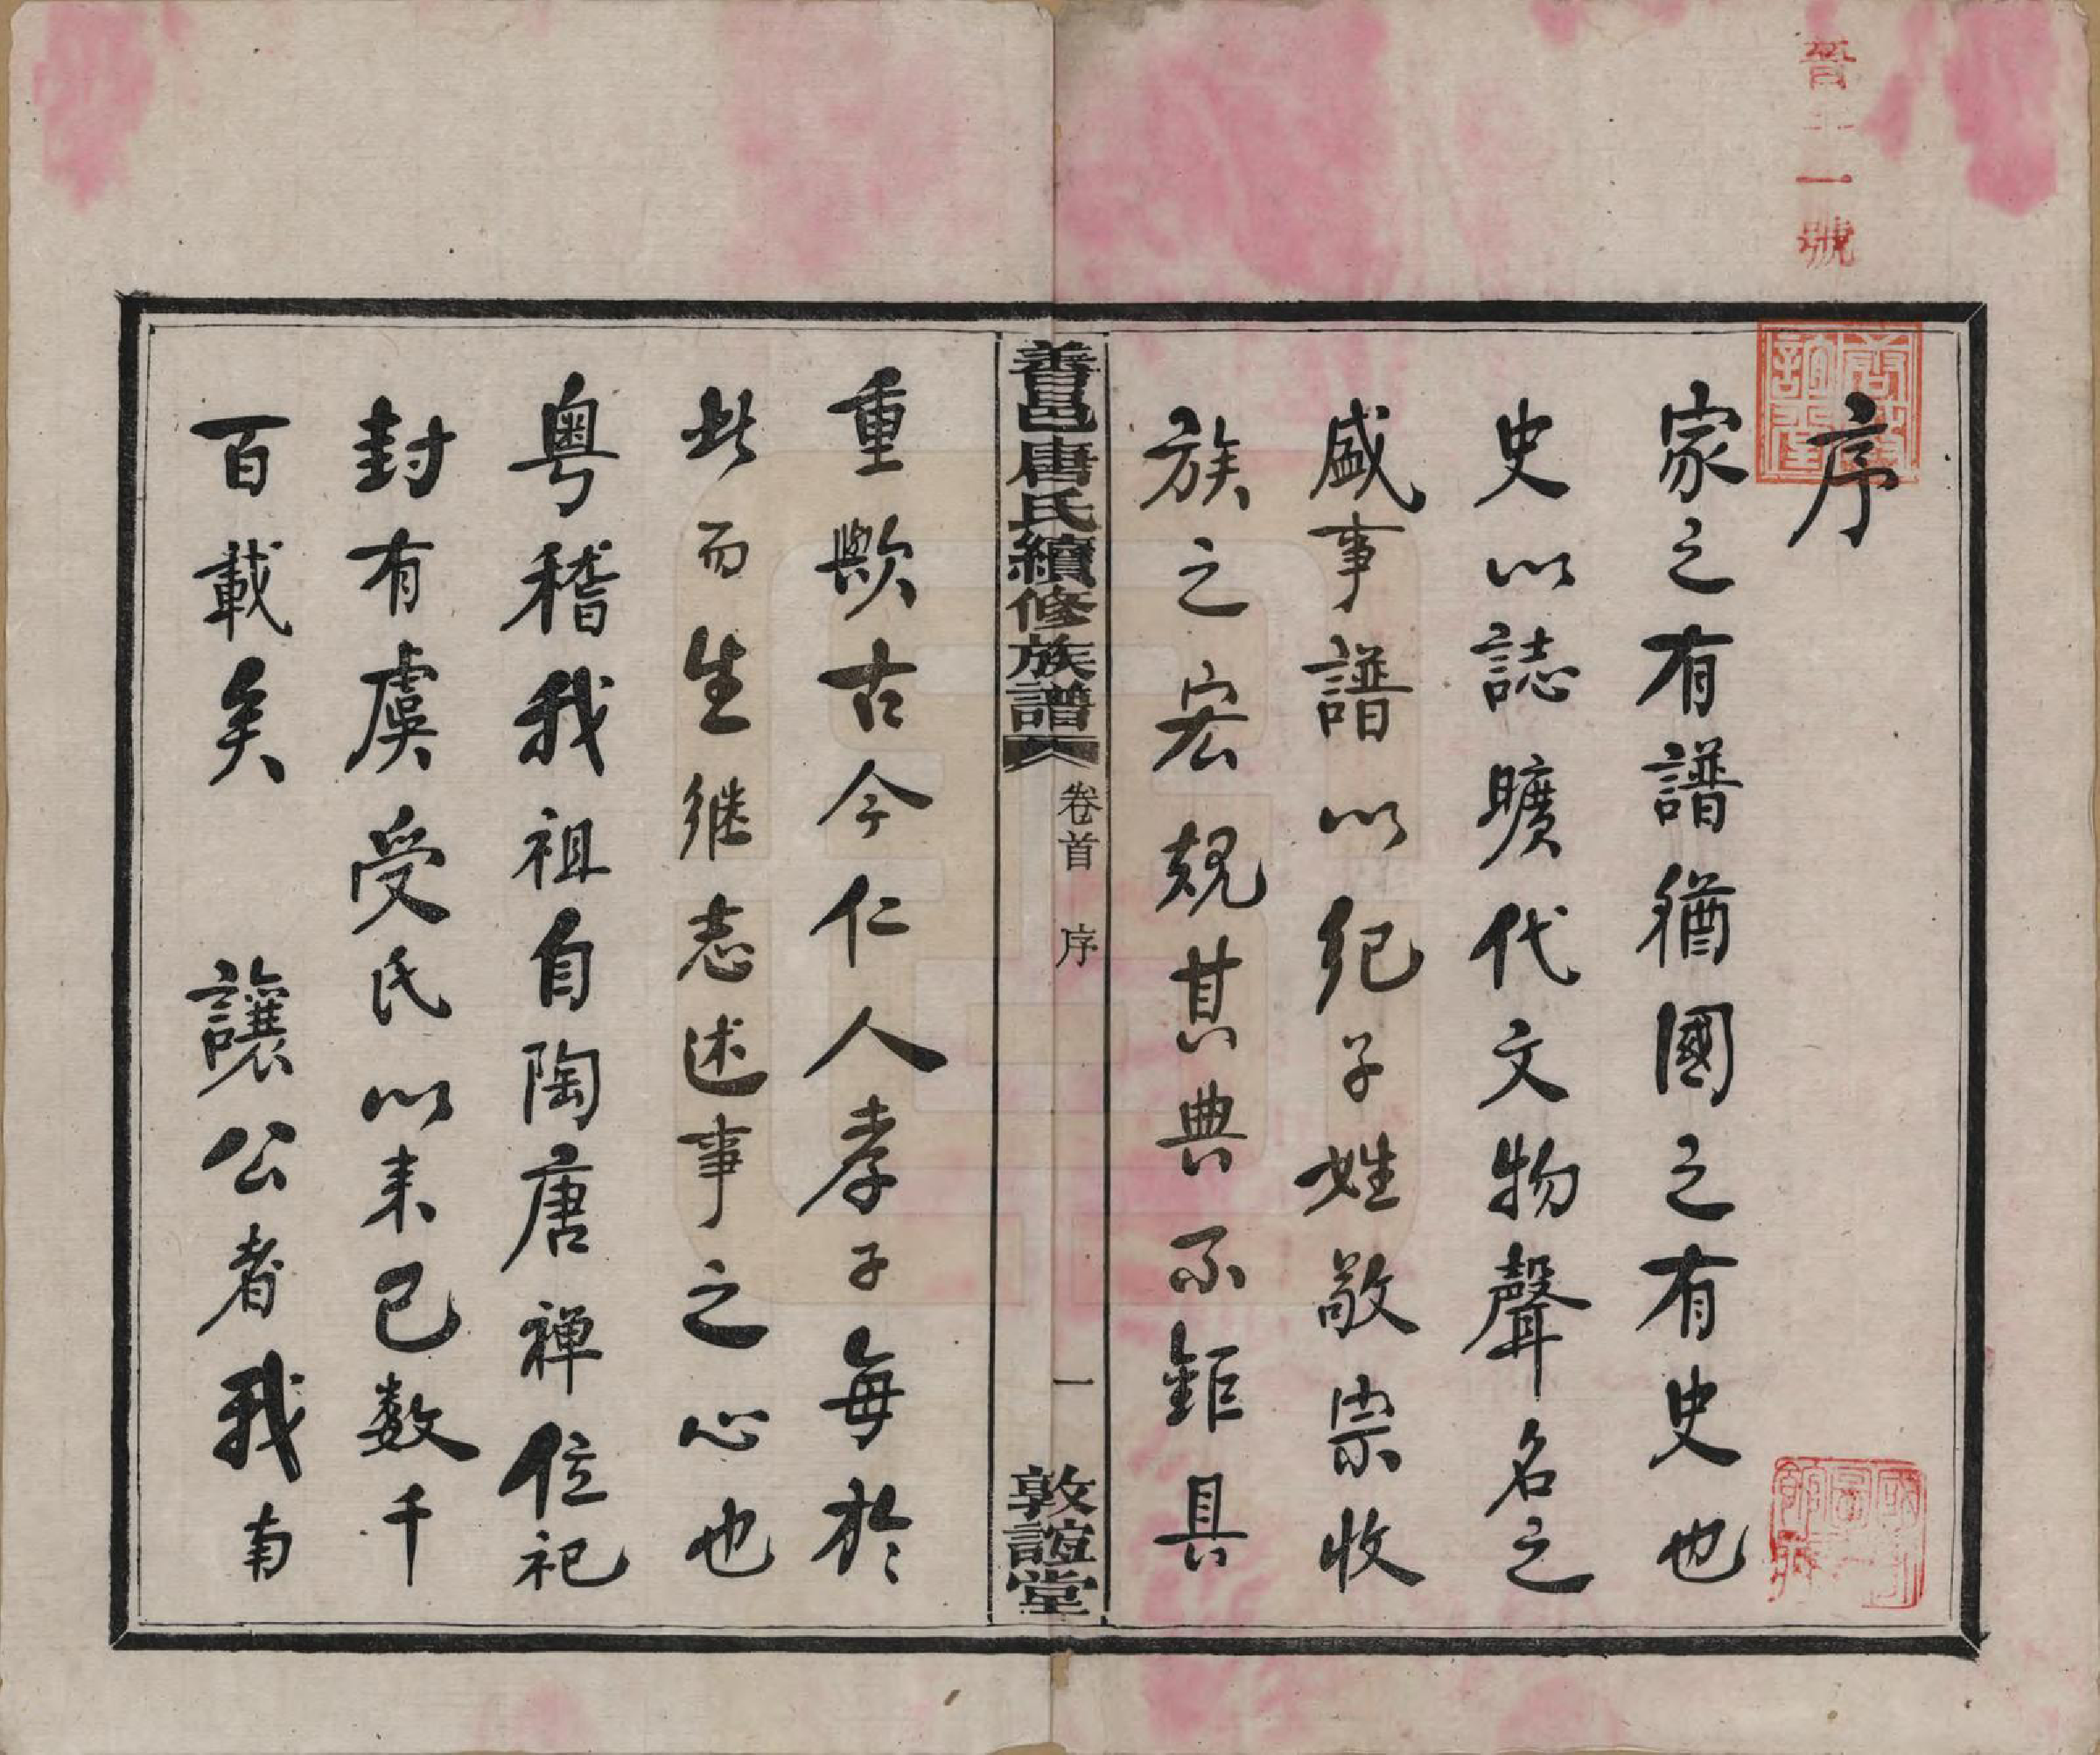 晉十一號
序
家之有譜猶國之有史也
史以誌曠代文物聲名之
盛事譜以紀子姓敬宗收
族之宏規其典不鉅具
重歟古今仁人孝子每於
此而生継志述事之心也
粵稽我祖自陶唐禅位祀
封有虞受氏以来已数千
百載矣 讓公者我南
善邑唐氏續修族譜
卷首 序
一
敦誼堂